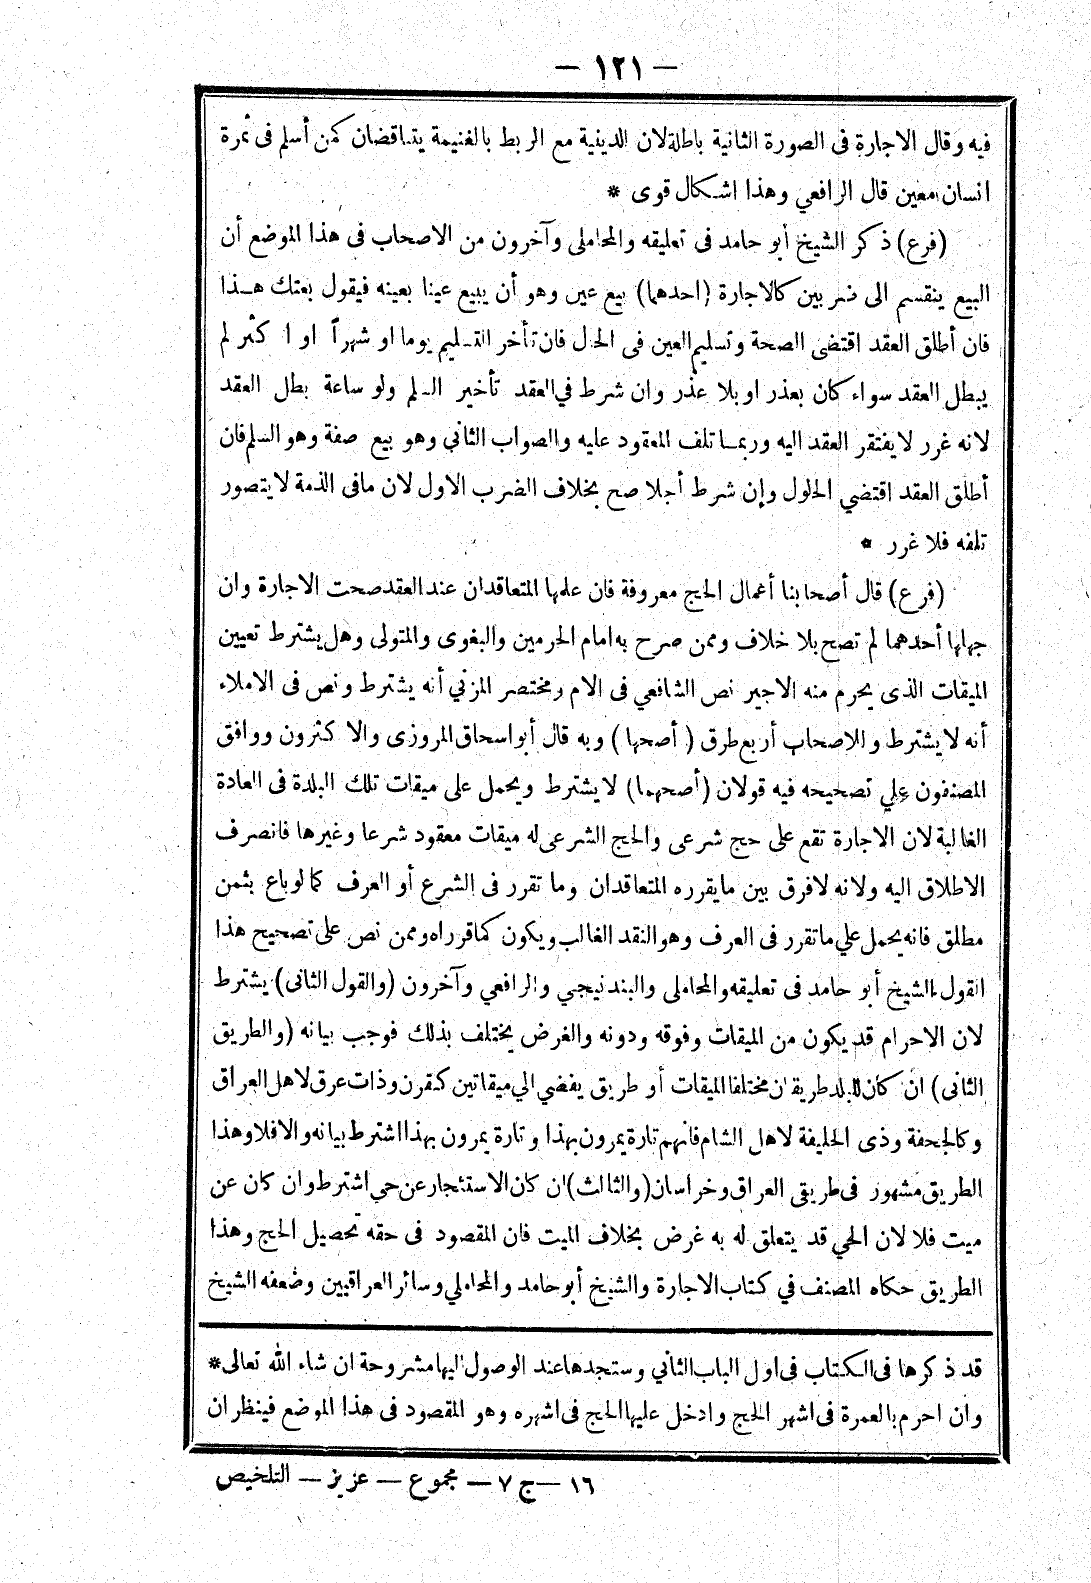 — ١٢١ —
فيه وقال الاجارة فى الصورة الثانية باطلة لان الدينية مع الربط بالغنيمة يتناقضان كمن أسلم فى ثمرة
انسان معين قال الرافعي وهذا اشكال قوى *
(فرع) ذكر الشيخ أبو حامد فى تعليقه والمحاملى وآخرون من الاصحاب فى هذا الموضع أن
البيع ينقسم الى ضربين كالاجارة (احدهما) بيع عين وهو أن يبيع عينا بعينه فيقول بعتك هـذا
فان أطلق العقد اقتضى الصحة وتسليم العين فى الحال فان تأخر التسليم يوما او شهراً او اكثر لم
يبطل العقد سواء كان بعذر او بلا عذر وان شرط في العقد تأخير السلم ولو ساعة بطل العقد
لانه غرر لا يفتقر العقد اليه وربمـا تلف المعقود عليه والصواب الثاني وهو بيع صفة وهو السلم فان
أطلق العقد اقتضي الحلول وإن شرط أجلا صح بخلاف الضرب الاول لان مافى الذمة لا يتصور
تلفه فلا غرر *
(فرع) قال أصحابنا أعمال الحج معروفة فان علمها المتعاقدان عند العقد صحت الاجارة وان
جهلها أحدهما لم تصح بلا خلاف وممن صرح به امام الحرمين والبغوى والمتولى وهل يشترط تعيين
الميقات الذى يحرم منه الاجير نص الشافعي فى الام ومختصر المزني أنه يشترط ونص فى الاملاء
أنه لا يشترط وللاصحاب أربع طرق (أصحها) وبه قال أبو اسحاق المروزى والاكثرون ووافق
المصنفون علي تصحيحه فيه قولان (أصحهما) لا يشترط ويحمل على ميقات تلك البلدة فى العادة
الغالبة لان الاجارة تقع على حج شرعى والحج الشرعى له ميقات معقود شرعا وغيرها فانصرف
الاطلاق اليه ولانه لا فرق بين ما يقرره المتعاقدان وما تقرر فى الشرع أو العرف كما لو باع بثمن
مطلق فانه يحمل علي ما تقرر فى العرف وهو النقد الغالب ويكون كما قرراه وممن نص على تصحيح هذا
القول الشيخ أبو حامد فى تعليقه والمحاملى والبندنيجي والرافعي وآخرون (والقول الثانى) يشترط
لان الاحرام قد يكون من الميقات وفوقه ودونه والغرض يختلف بذلك فوجب بيانه (والطريق
الثانى) ان كان للبلد طريقان مختلفا الميقات أو طريق يفضي الي ميقاتين كقرن وذات عرق لاهل العراق
وكالجحفة وذى الحليفة لاهل الشام فانهم تارة يمرون بهذا وتارة يمرون بهذا اشترط بيانه والا فلا وهذا
الطريق مشهور فى طريقى العراق وخراسان (والثالث) ان كان الاستئجار عن حي اشترط وان كان عن
ميت فلا لان الحي قد يتعلق له به غرض بخلاف الميت فان المقصود فى حقه تحصيل الحج وهذا
الطريق حكاه المصنف في كتاب الاجارة والشيخ أبو حامد والمحاملي وسائر العراقيين وضعفه الشيخ
قد ذكرها فى الـكتاب فى اول الباب الثاني وستجدها عند الوصول اليها مشروحة ان شاء الله تعالى *
وان احرم بالعمرة فى اشهر الحج وادخل عليها الحج فى اشهره وهو المقصود فى هذا الموضع فينظر ان
١٦ — ج ٧ — مجموع — عزيز — التلخيص